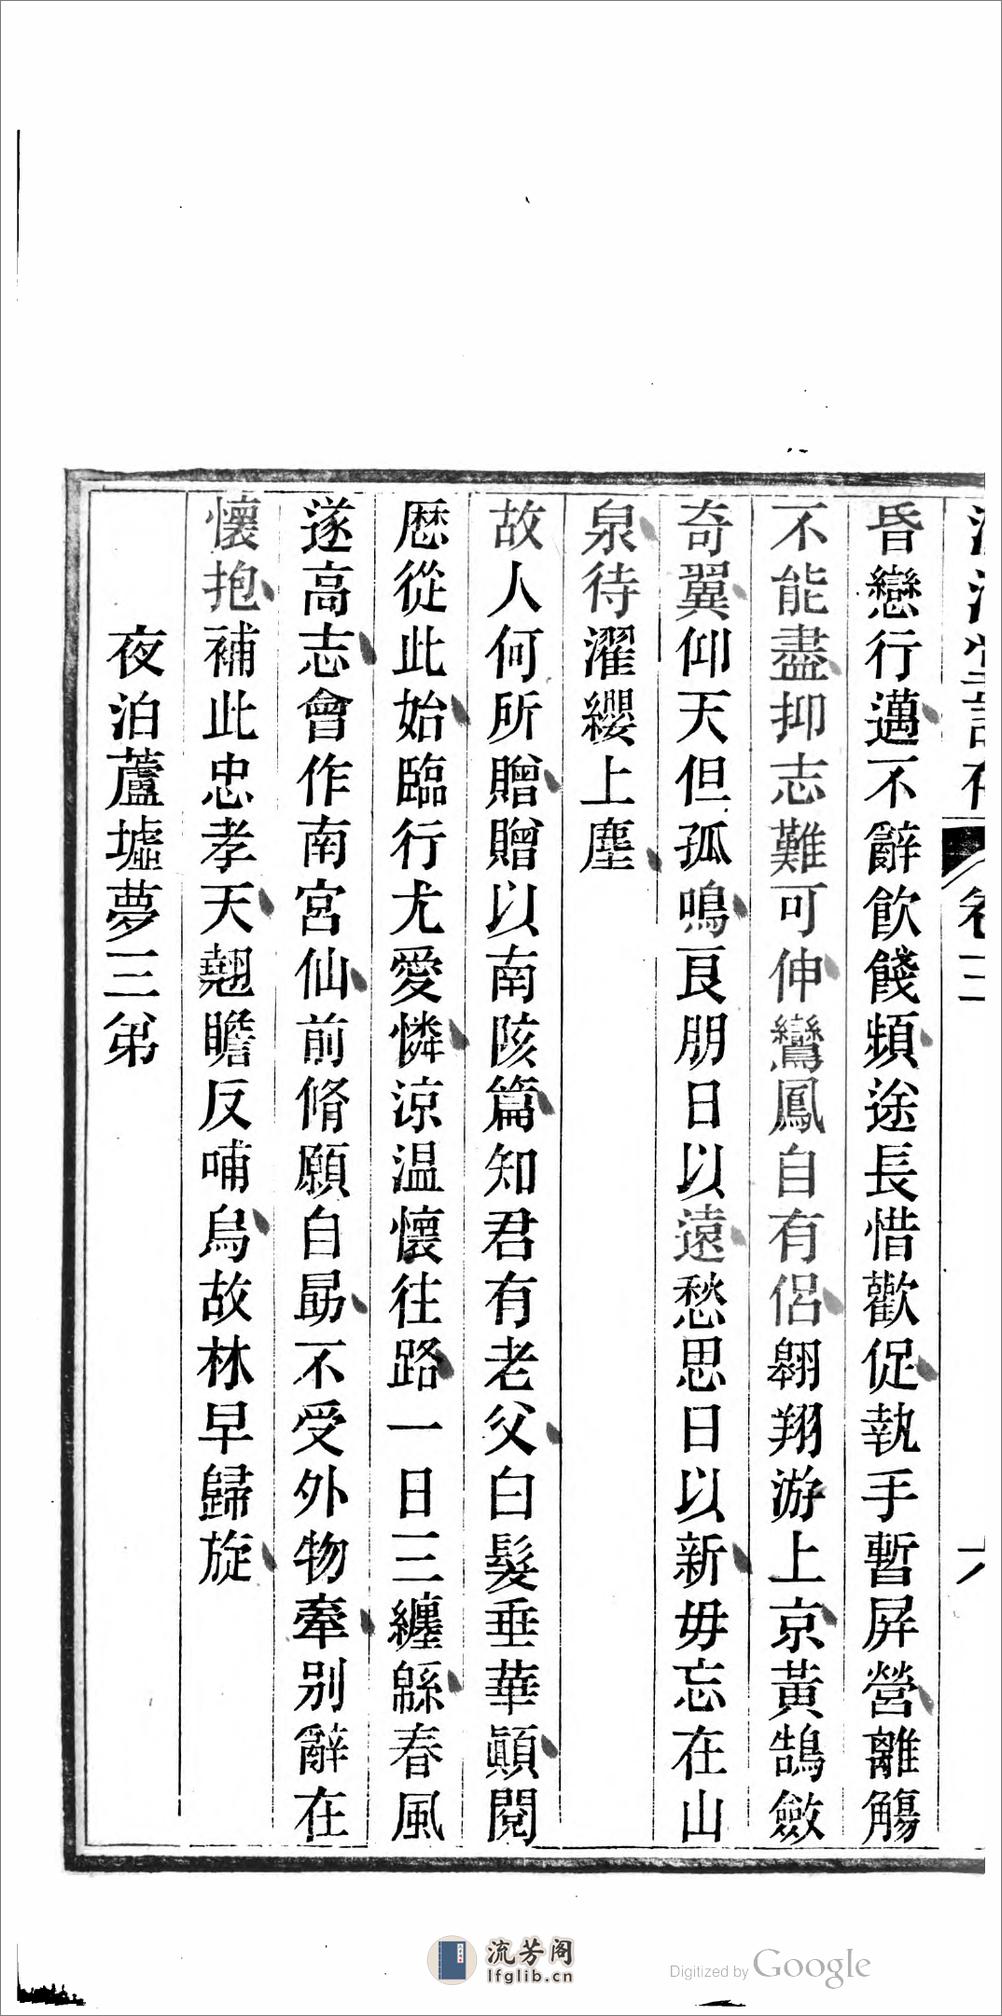 卷三
六
昏戀行邁不辭飲餞頻途長惜歡促執手暫屏營離觴
不能盡抑志難可伸鸞鳳自有侶翱翔游上京黃鵠斂
奇翼仰天但孤鳴良朋日以遠愁思日以新毋忘在山
泉待濯纓上塵
故人何所贈贈以南陔篇知君有老父白髮垂華顚閱
厯從此始臨行尤愛憐涼温懷往路一日三纏緜春風
遂高志會作南宮仙前脩願自勗不受外物牽别辭在
懷抱補此忠孝天翹瞻反哺烏故林早歸旋
夜泊蘆墟夢三弟
流芳阁
lfglib.cn
Digitized by Google